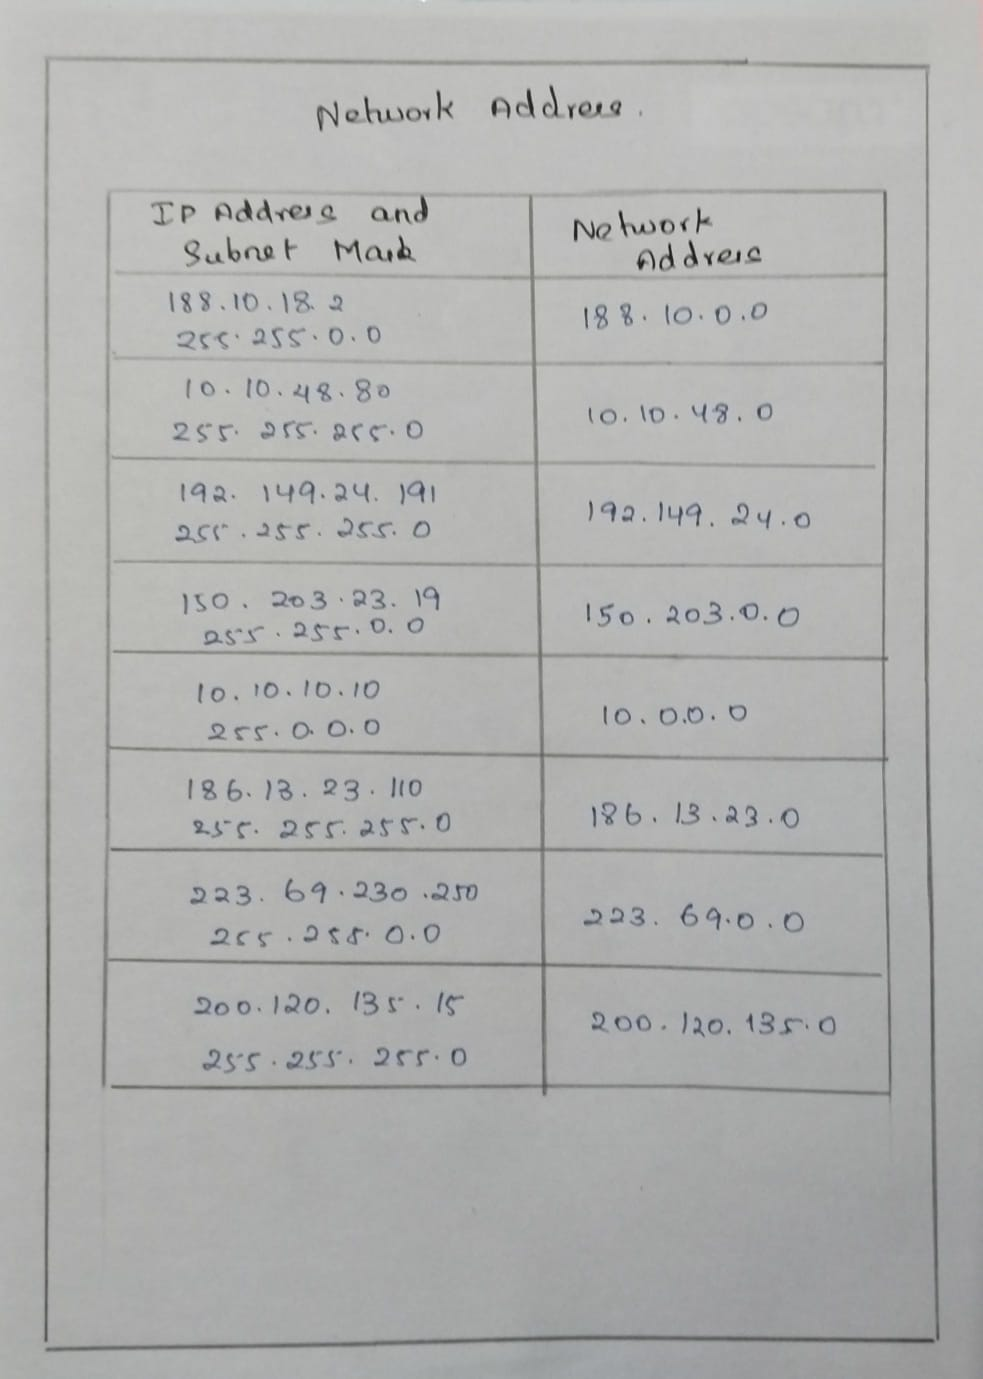 Network Address.
IP Address and
Subnet Mask
Network
Address
188.10.18.2
255.255.0.0
188.10.0.0
10.10.48.80
255.255.255.0
10.10.48.0
192.149.24.191
255.255.255.0
192.149.24.0
150.203.23.19
255.255.0.0
150.203.0.0
10.10.10.10
255.0.0.0
10.0.0.0
186.13.23.110
255.255.255.0
186.13.23.0
223.69.230.250
255.255.0.0
223.69.0.0
200.120.135.15
255.255.255.0
200.120.135.0